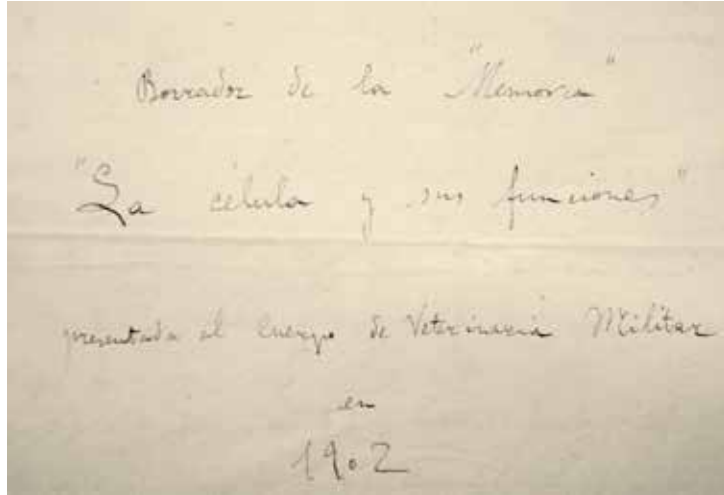 Borrador de la "Memoria"
"La célula y sus funciones"
presentada al Cuerpo de Veterinaria Militar
en
1902